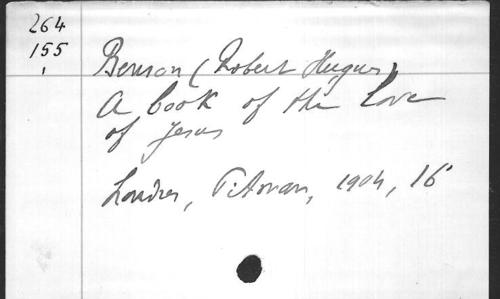 264
155
Benson (Robert Hugues)
A book of the Love
of Jesus
Londres, Pitman, 1904, 16°